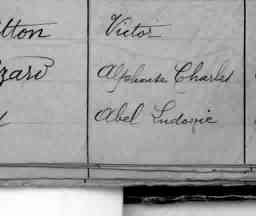 tton Victor
zard Alphonse Charles
Abel Ludovic